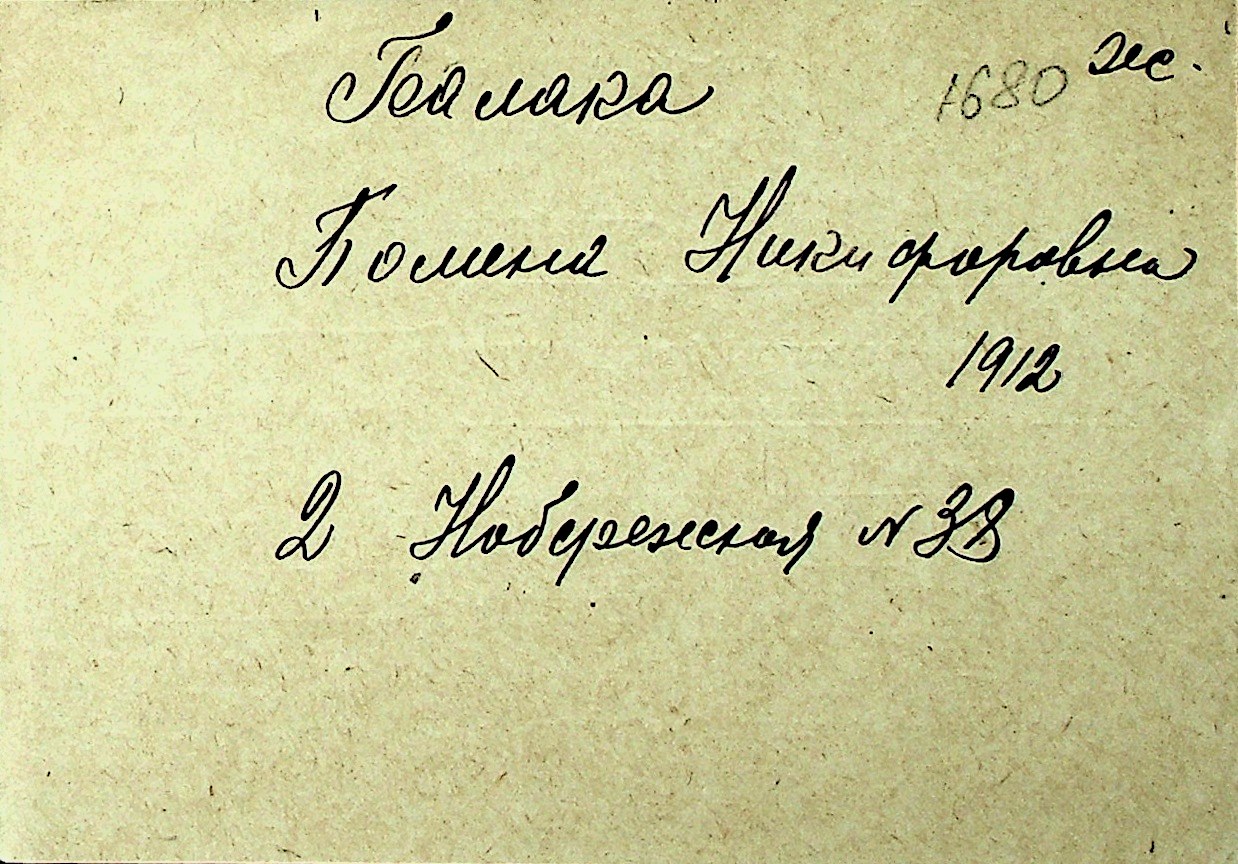 Балака 1680 жс.
Помена Никифоровна
1912
2 Набережная N 38